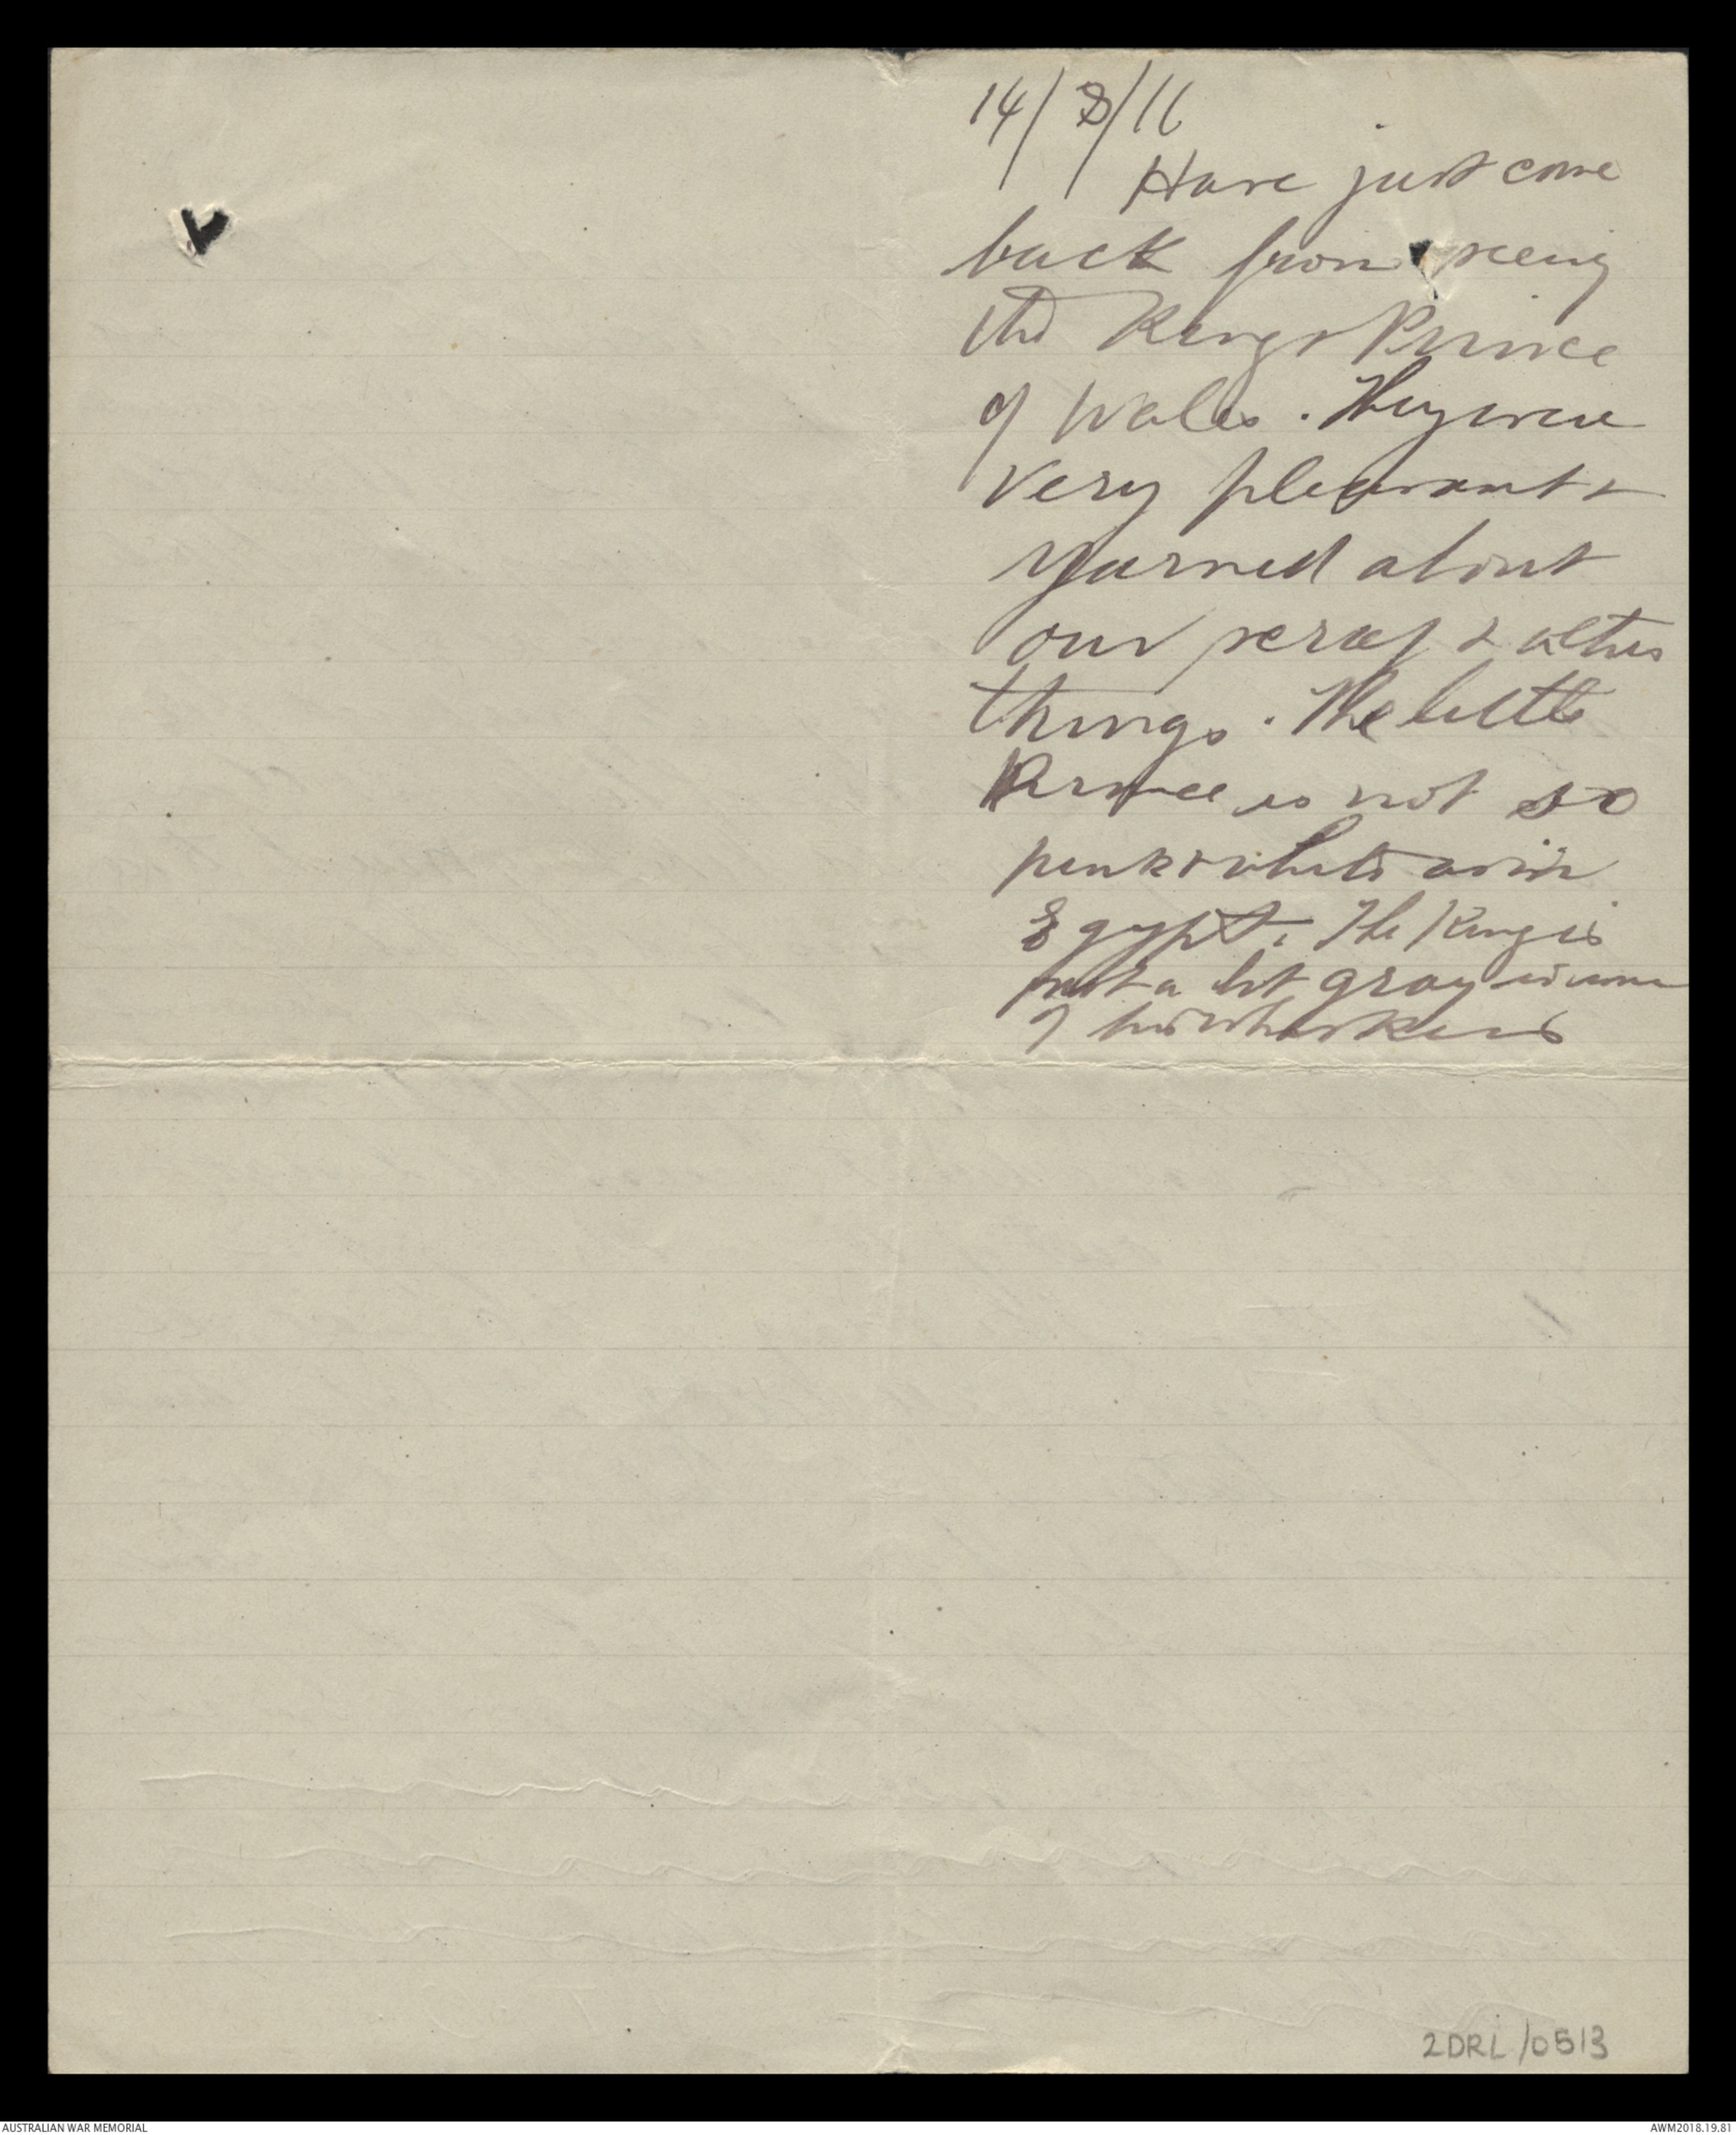 14/8/16
Have just come
back from seeing
the King & Prince
of Wales. They were
very pleasant &
yarned about
our scrap & other
things. The little
Prince is not so
pink & white as in
Egypt. The King is
just a bit gray in some
of his whiskers
2DRL/0513
AUSTRALIAN WAR MEMORIAL
AWM2018.19.81